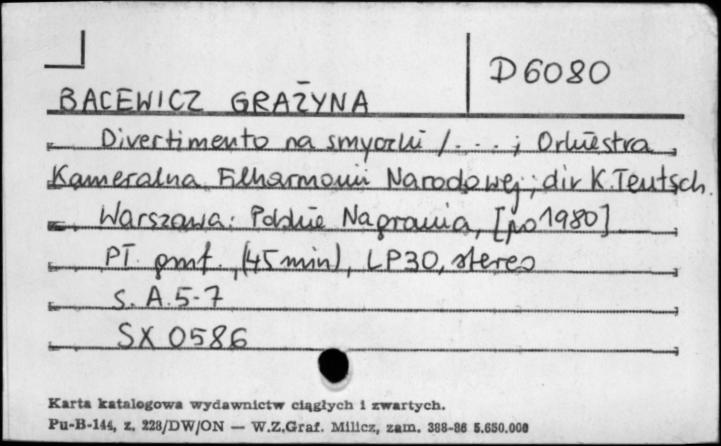 D6080
BACEWICZ GRAŻYNA
Divertimento na smyczki / . . . ; Orkiestra
Kameralna Filharmonii Narodowej ; dir K. Teutsch.
Warszawa : Polskie Nagrania, [po 1980]
PŁ gmf. , (45 min), LP30, stereo
S. A. 5-7
SX 0586
Karta katalogowa wydawnictw ciągłych i zwartych.
Pu-B-144, z. 228/DW/ON — W.Z.Graf. Milicz, zam. 388-86 5.650.000